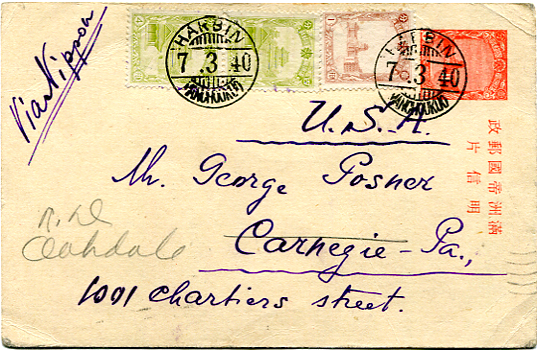 Via Nippon
HARBIN
7.3 40
MANCHOUKUO
HARBIN
7.3 40
MANCHOUKUO
U.S.A.
Mr. George Posner
Carnegie - Pa.,
1001 Chartiers street.
R.D
Oakdale
滿洲帝國郵政
明信片